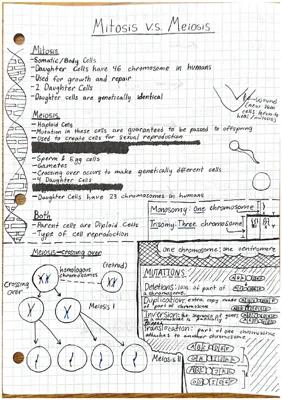 Mitosis v.s. Meiosis
Mitosis
-Somatic/Body Cells
-Daughter Cells have 46 chromosome in humans
-Used for growth and repair
-2 Daughter Cells
-Daughter cells are genetically identical
Meiosis
-Haploid Cells
-Mutation in these cells are guaranteed to be passed to offspring
-Used to create cells for sexual reproduction
-Sperm & Egg cells
-Gametes
-Crossing over occurs to make genetically different cells
-4 Daughter Cells
-Daughter Cells have 23 chromosomes in humans
Both
-Parent cells are Diploid Cells
-Type of cell reproduction
Monosomy: One chromosome
Trisomy: Three chromosome
One chromosome: one centromere
Meiosis-crossing over
homologous chromosomes
(tetrad)
Crossing over
Meiosis I
Meiosis II
MUTATIONS
Deletions: loss of part of a chromosome
Duplication: extra copy made of part of chromosome
Inversion: the sequence of genes
Translocation: part of one chromosome
attaches to another chromosome